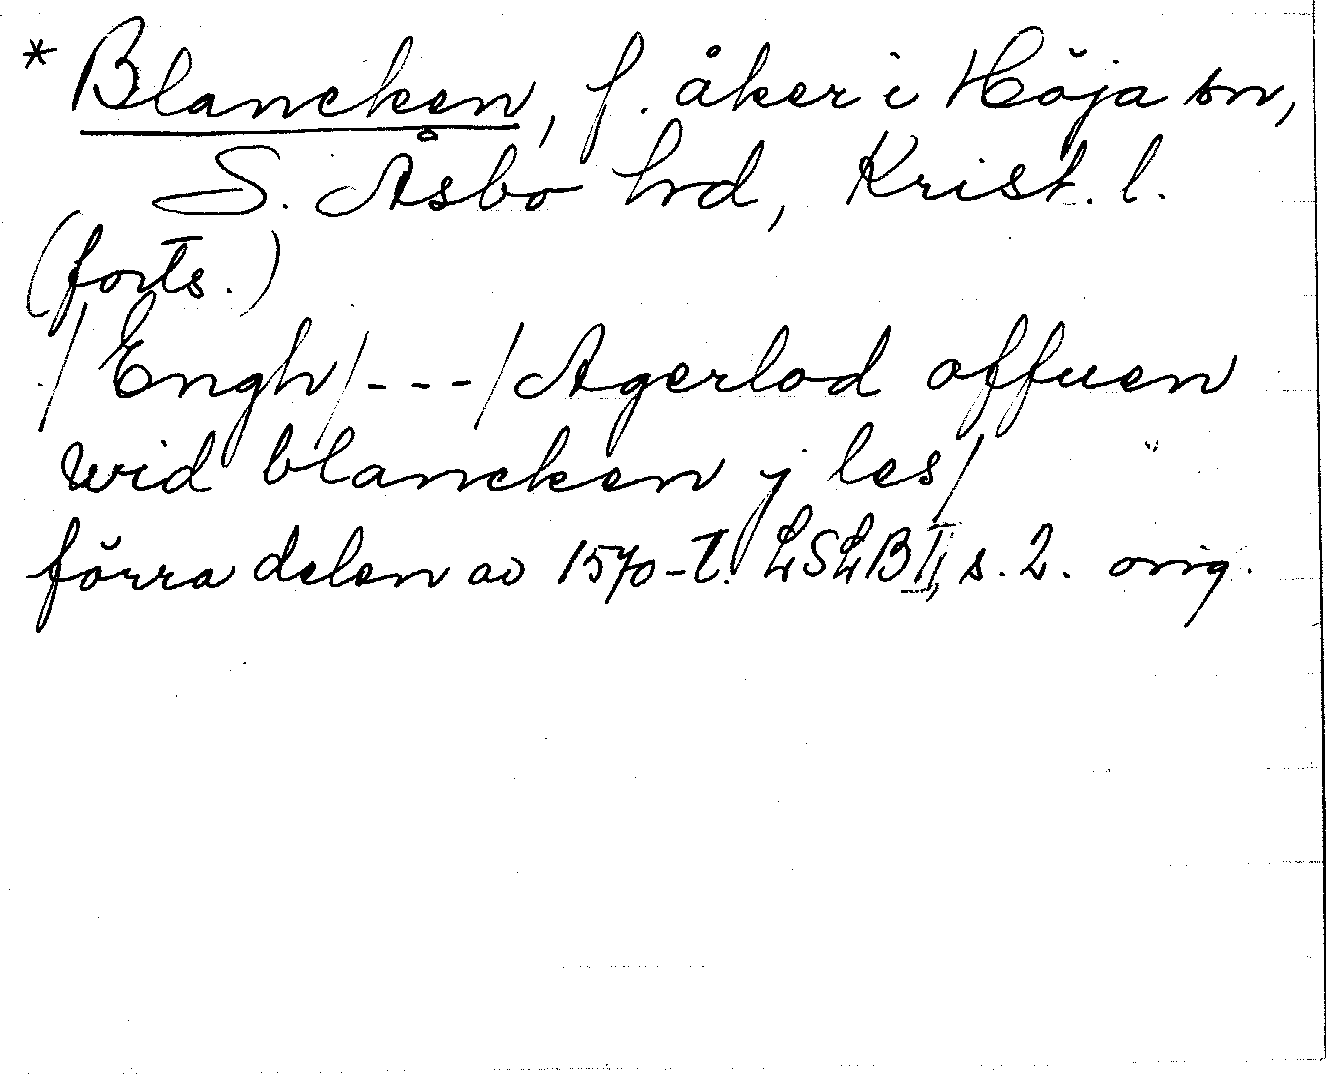 * Blancken, f. åker i Höja sn,
S. Åsbo hrd, Krist. l.
(forts.)
/Engh/---/Agerlod offuen
wid blancken j les/
förra delen av 1570-t. LSLB II, s. 2. orig.